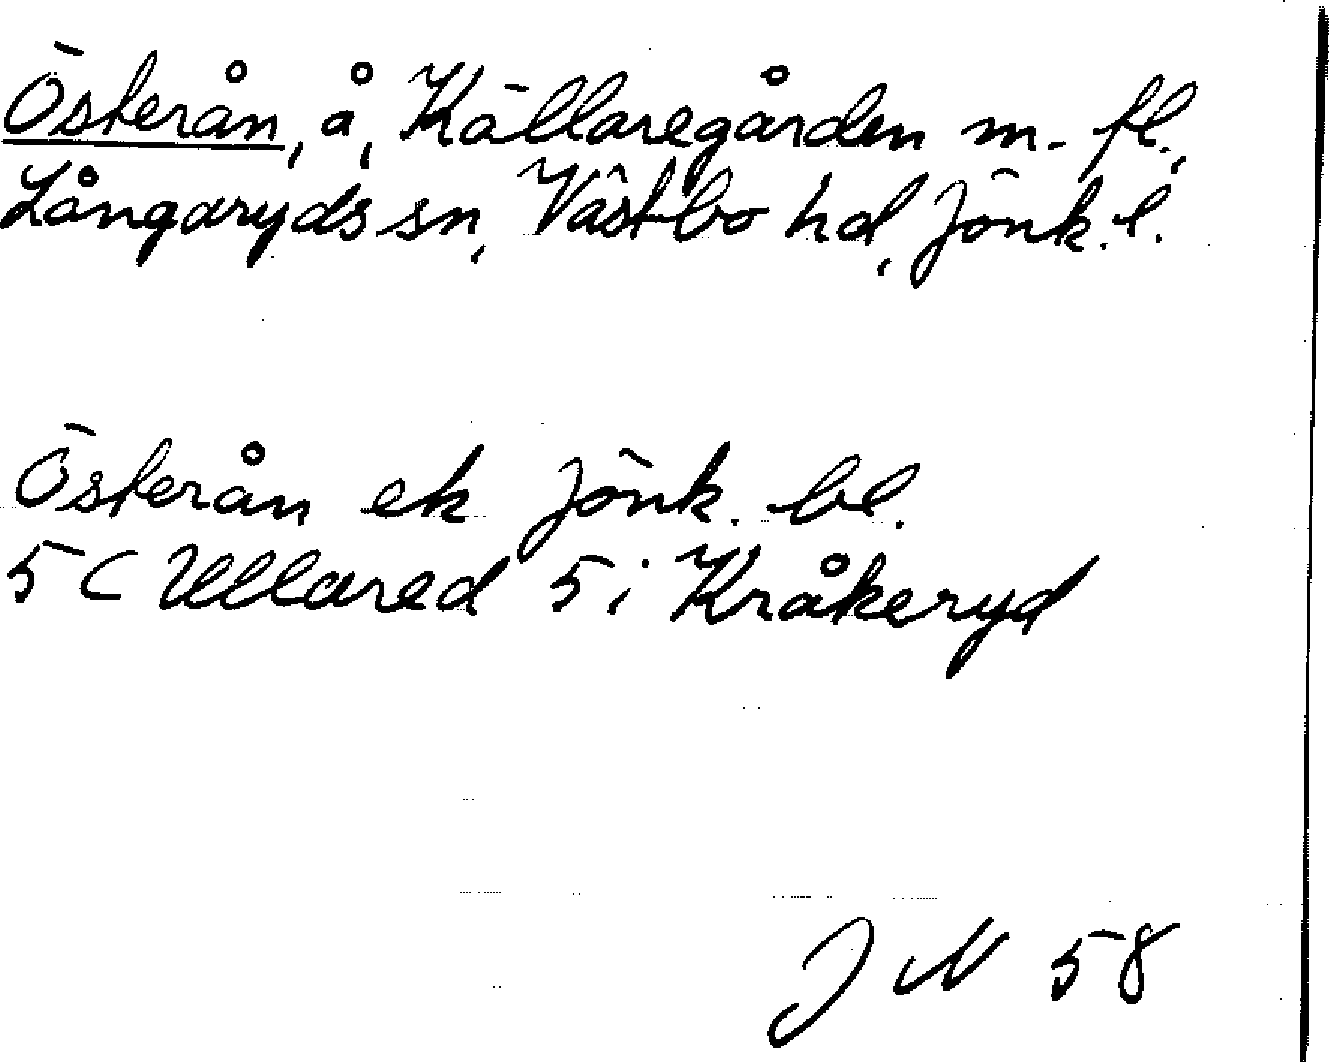 Österån, å, Källaregården m. fl.,
Långaryds sn, Västbo hd, Jönk. l.
Österån ek Jönk. bl.
5 C Ullared 5 i Kråkeryd
J N 58